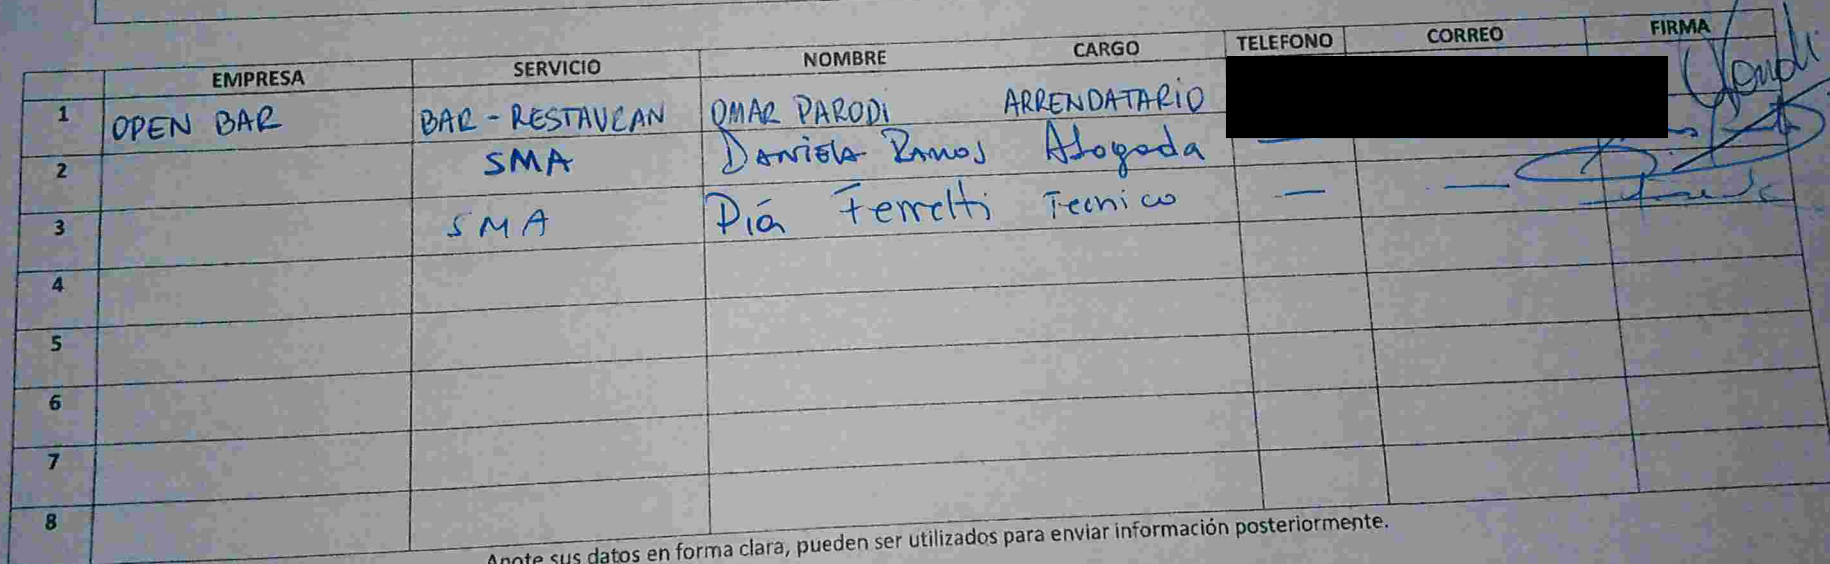 EMPRESA SERVICIO NOMBRE CARGO TELEFONO CORREO FIRMA
1 OPEN BAR BAR - RESTAURAN OMAR PARODI ARRENDATARIO
2 SMA DANIELA RAMOS Abogada —
3 SMA Pía Ferretti Tecnico — —
4
5
6
7
8
Anote sus datos en forma clara, pueden ser utilizados para enviar información posteriormente.